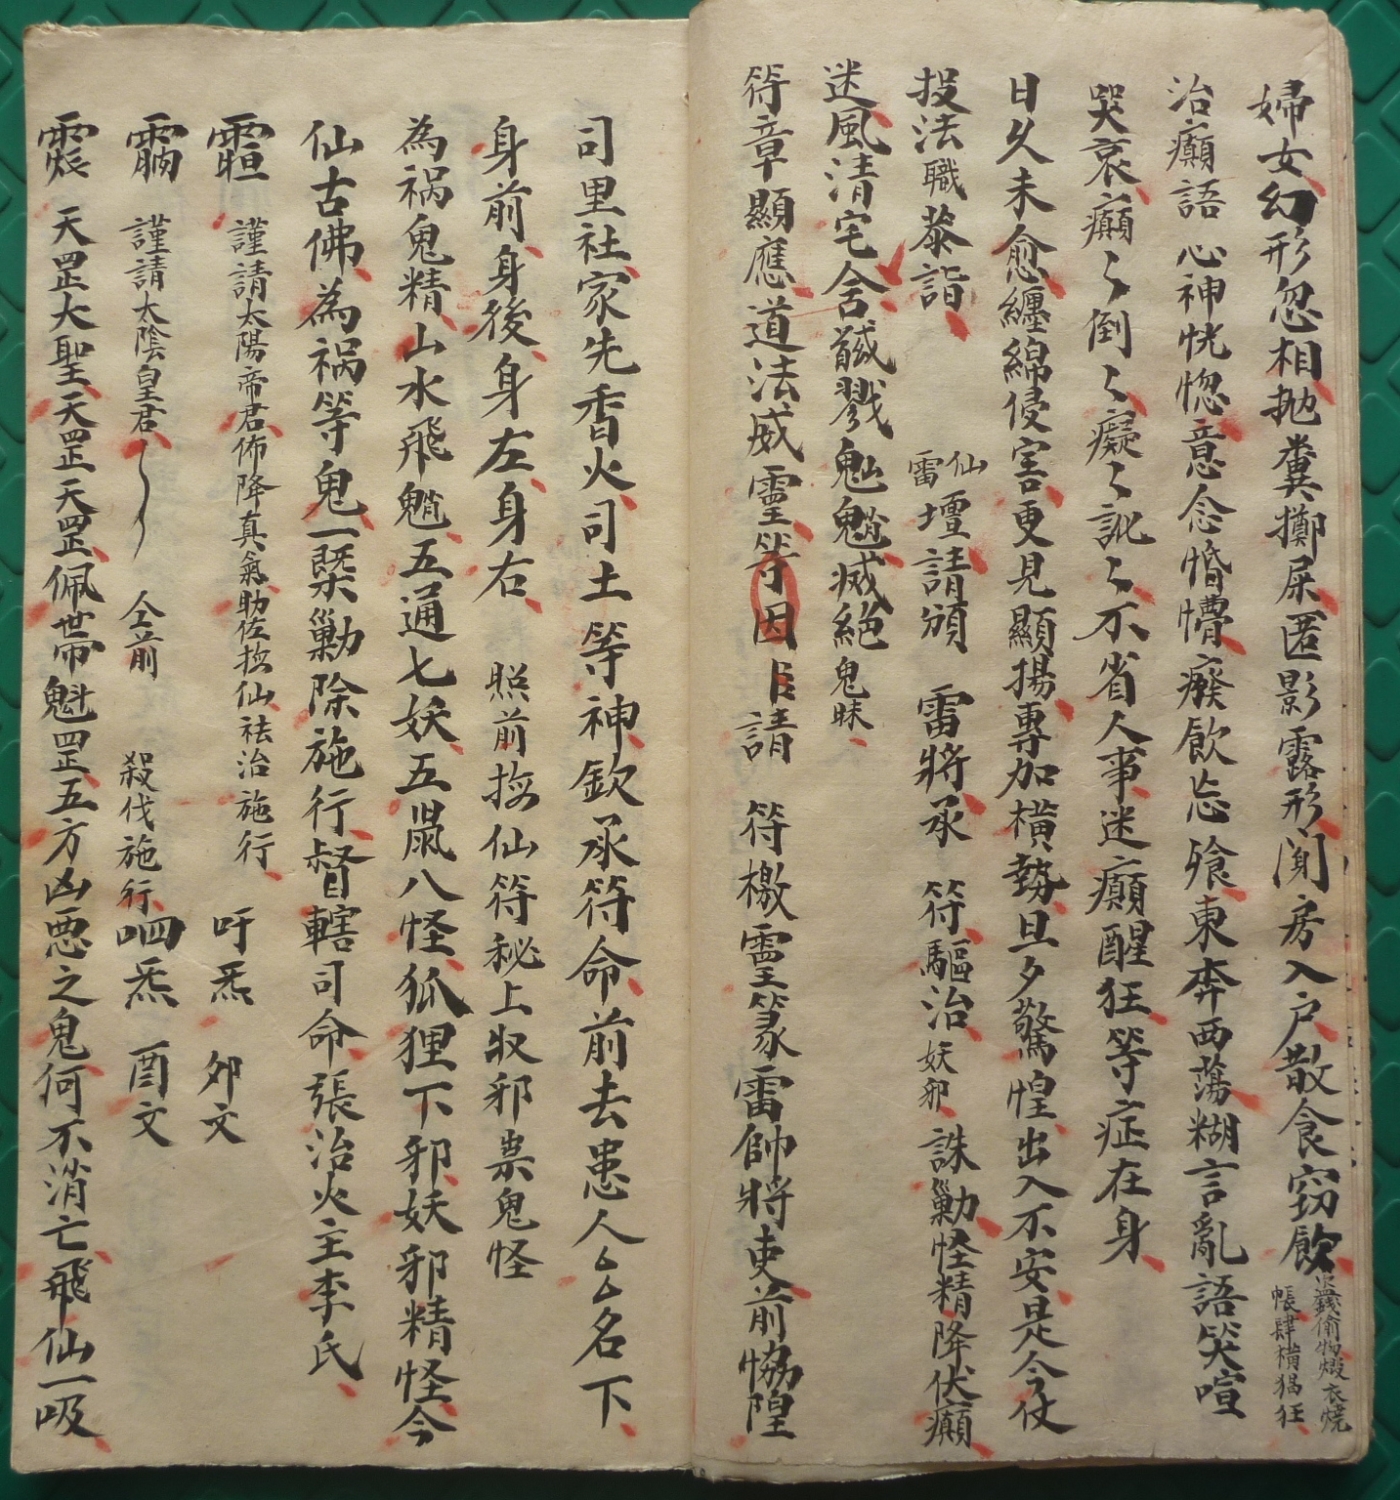 婦女幻形忽相抛糞擲屎匿影露形閨房入戶散食窃飲
盜錢偷物燬衣燒
帳肆橫猖狂
治癲語心神恍惚意念惛懵癈飲忘飱東奔西蕩糊言亂語笑喧
哭哀癲々倒々癡々訛々不省人事迷癲醒狂等症在身
日久未愈纏綿侵害更見顯揚專加橫勢旦夕驚惶出入不安是今仗
投法職恭詣 仙雷壇請頒 雷將承 符驅治妖邪誅勦怪精降伏癲
迷風清宅舍馘戮魀魈滅絕鬼昧
符章顯應道法威靈等因臣請 符檄靈篆雷帥將吏前恊隍
司里社家先香火司土等神欽承符命前去患人厶厶名下
身前身後身左身右 照前按仙符秘上収邪祟鬼怪
為禍鬼精山水飛魈五通七妖五鼠八怪狐狸下邪妖邪精怪今
仙古佛為禍等鬼一槩勦除施行督轄司命張治火主李氏
謹請太陽帝君佈降真氣助佐按仙袪治施行 吁炁 卯文
謹請太陰皇君 仝前 殺伐施行 呬炁 酉文
天罡大聖天罡天罡佩帶魁罡五方凶惡之鬼何不消亡飛仙一吸